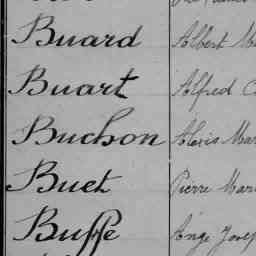 Buard Albert
Buart Alfred
Buchon Alexis Mar
Buet Pierre Mari
Buffe Ange Josep